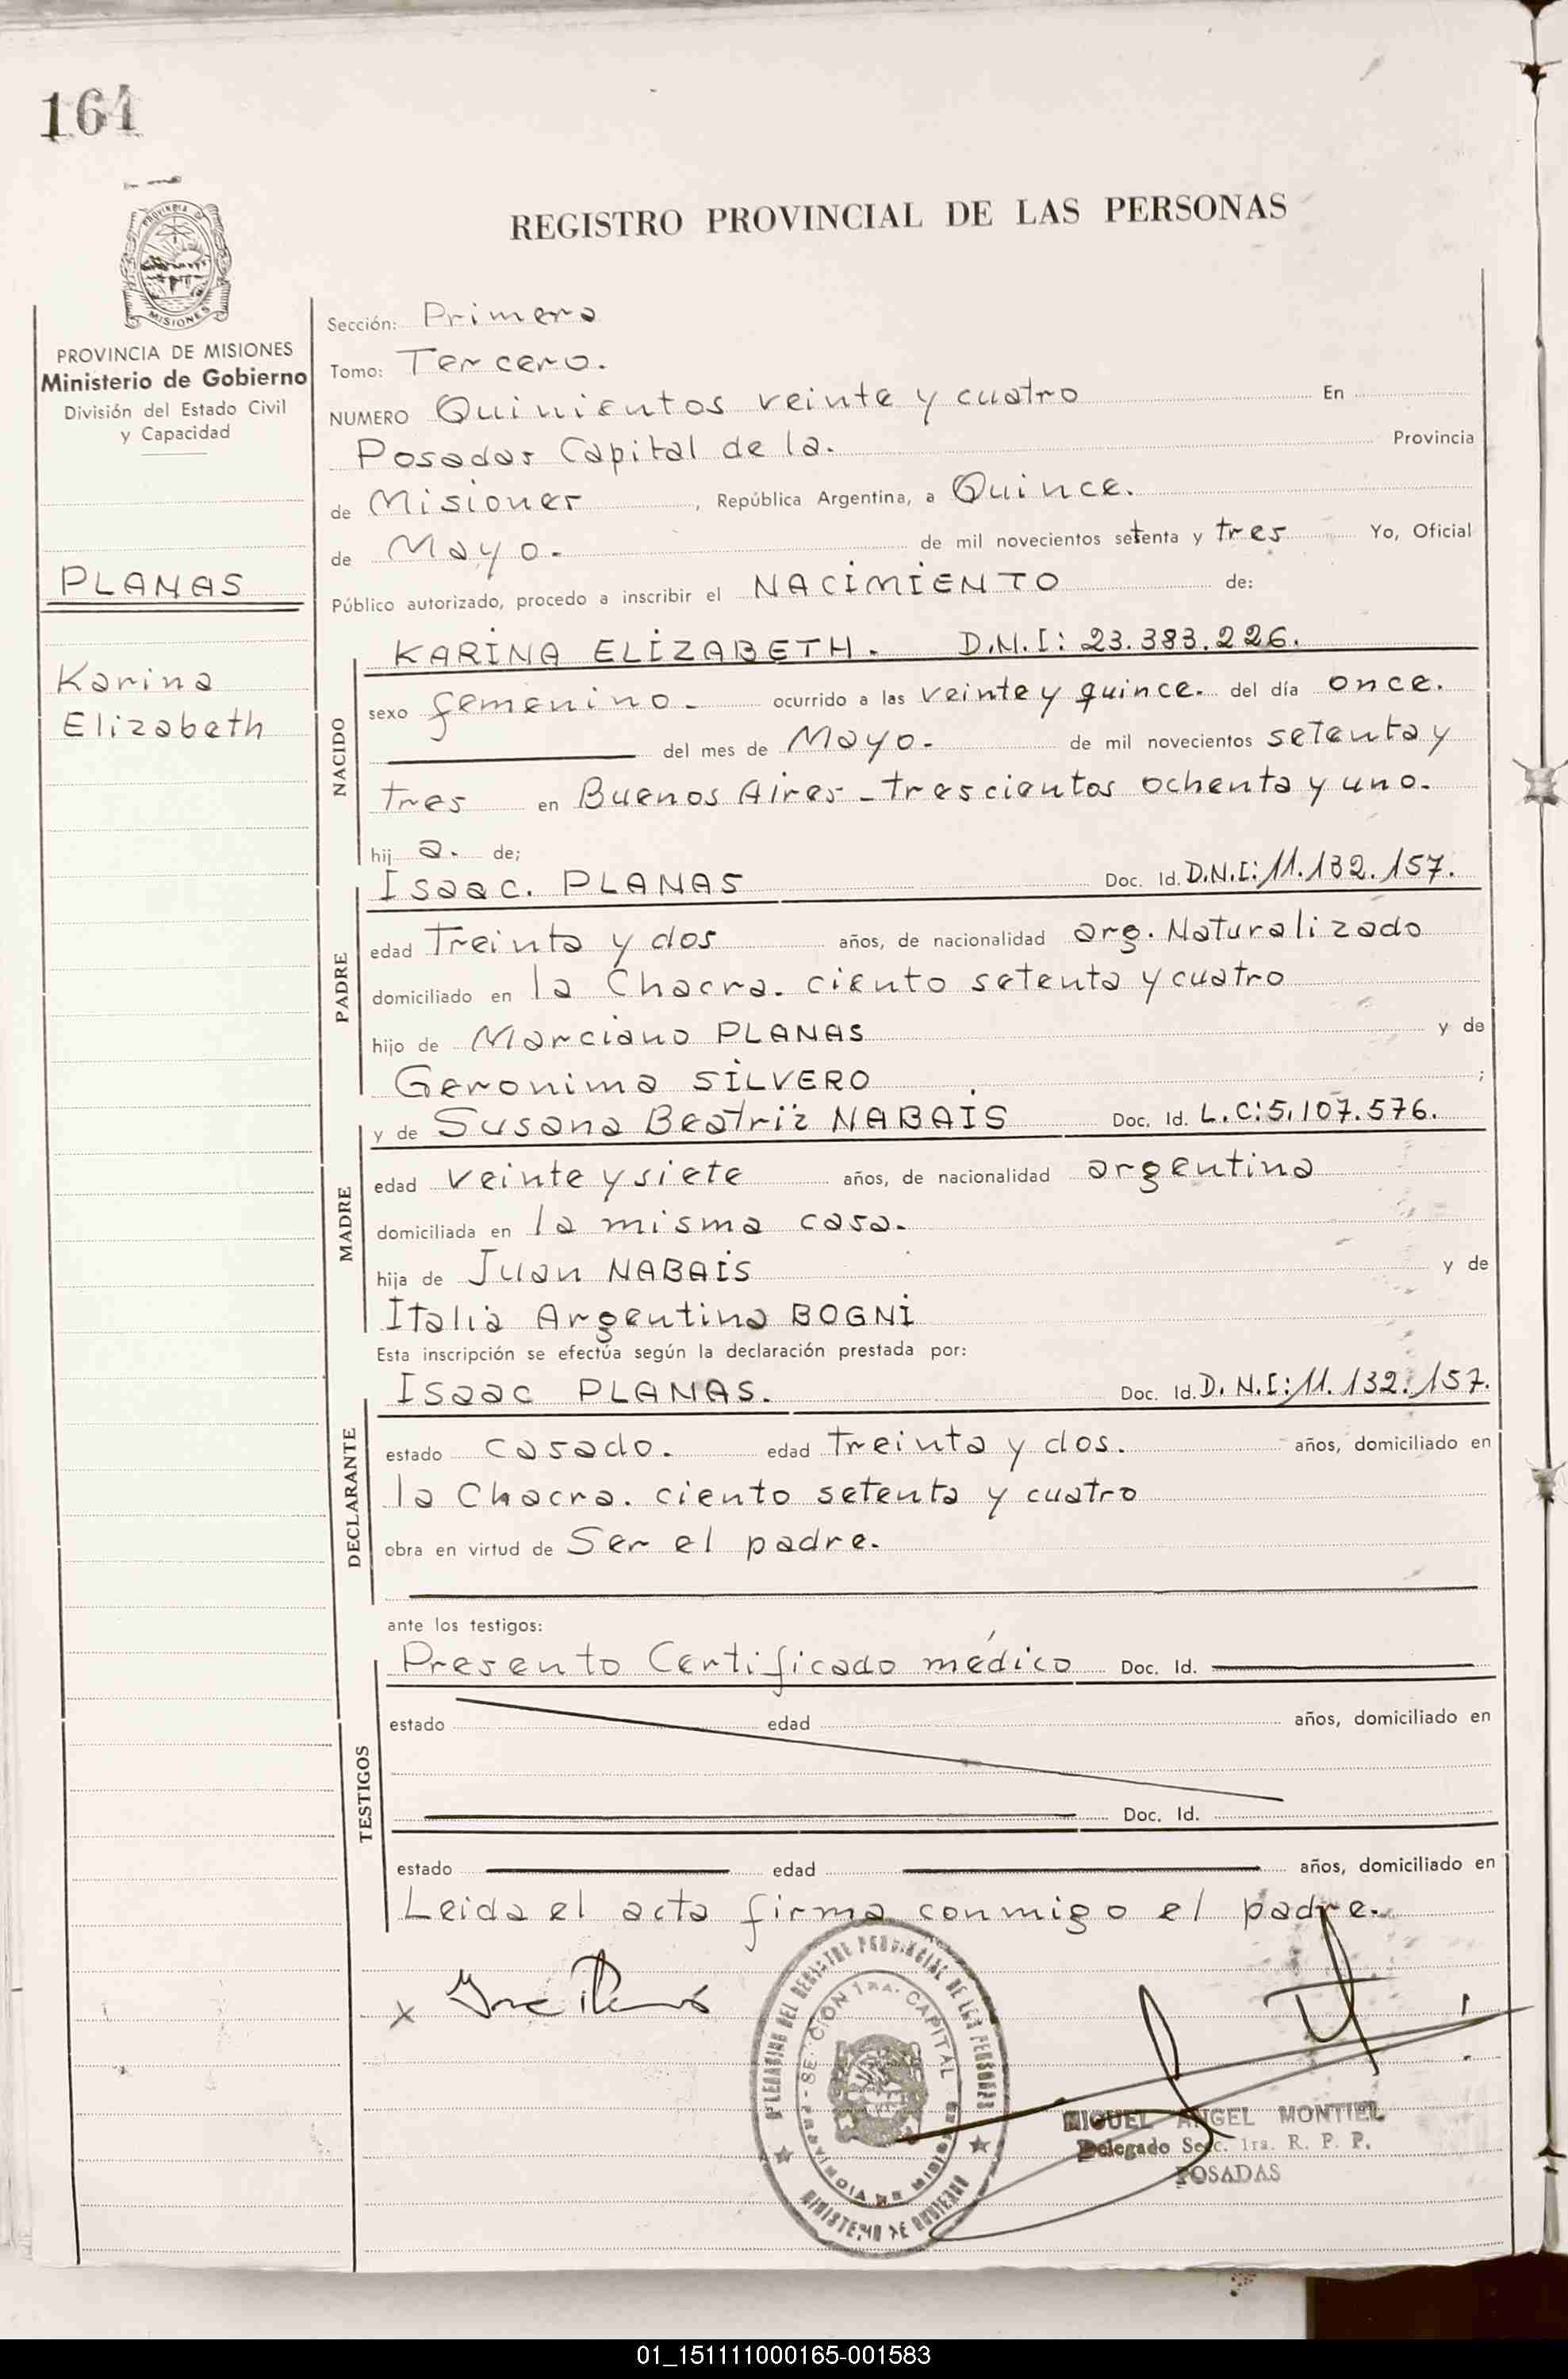 164
REGISTRO PROVINCIAL DE LAS PERSONAS
PROVINCIA DE MISIONES
Ministerio de Gobierno
División del Estado Civil
y Capacidad
PLANAS
Karina
Elizabeth
Sección: Primera
Tomo: Tercero.
NUMERO Quinientos veinte y cuatro En
Posadas Capital de la. Provincia
de Misiones, República Argentina, a Quince.
de Mayo.- de mil novecientos setenta y tres Yo, Oficial
Público autorizado, procedo a inscribir el NACIMIENTO de:
NACIDO
KARINA ELIZABETH. D.N.I: 23.383.226.
sexo femenino.- ocurrido a las veinte y quince. del día once.
del mes de Mayo.- de mil novecientos setenta y
tres en Buenos Aires - trescientos ochenta y uno.
hij a. de;
PADRE
Isaac. PLANAS Doc. Id. D.N.I: 11.132.157.
edad Treinta y dos años, de nacionalidad arg. Naturalizado
domiciliado en la Chacra. ciento setenta y cuatro
hijo de Marciano PLANAS y de
Geronima SILVERO ;
MADRE
y de Susana Beatriz NABAIS Doc. Id. L.C: 5.107.576.
edad veinte y siete años, de nacionalidad argentina
domiciliada en la misma casa.
hija de Juan NABAIS y de
Italia Argentina BOGNI
Esta inscripción se efectúa según la declaración prestada por:
DECLARANTE
Isaac PLANAS. Doc. Id. D.N.I: 11.132.157.
estado casado. edad treinta y dos. años, domiciliado en
la Chacra. ciento setenta y cuatro
obra en virtud de Ser el padre.
ante los testigos:
TESTIGOS
Presento Certificado médico Doc. Id.
estado edad años, domiciliado en
Doc. Id.
estado edad años, domiciliado en
Leida el acta firma conmigo el padre.
x
SECCION 1RA. CAPITAL
MINISTERIO DE GOBIERNO
MIGUEL ANGEL MONTIEL
Delegado Secc. 1ra. R. P. P.
POSADAS
01_151111000165-001583